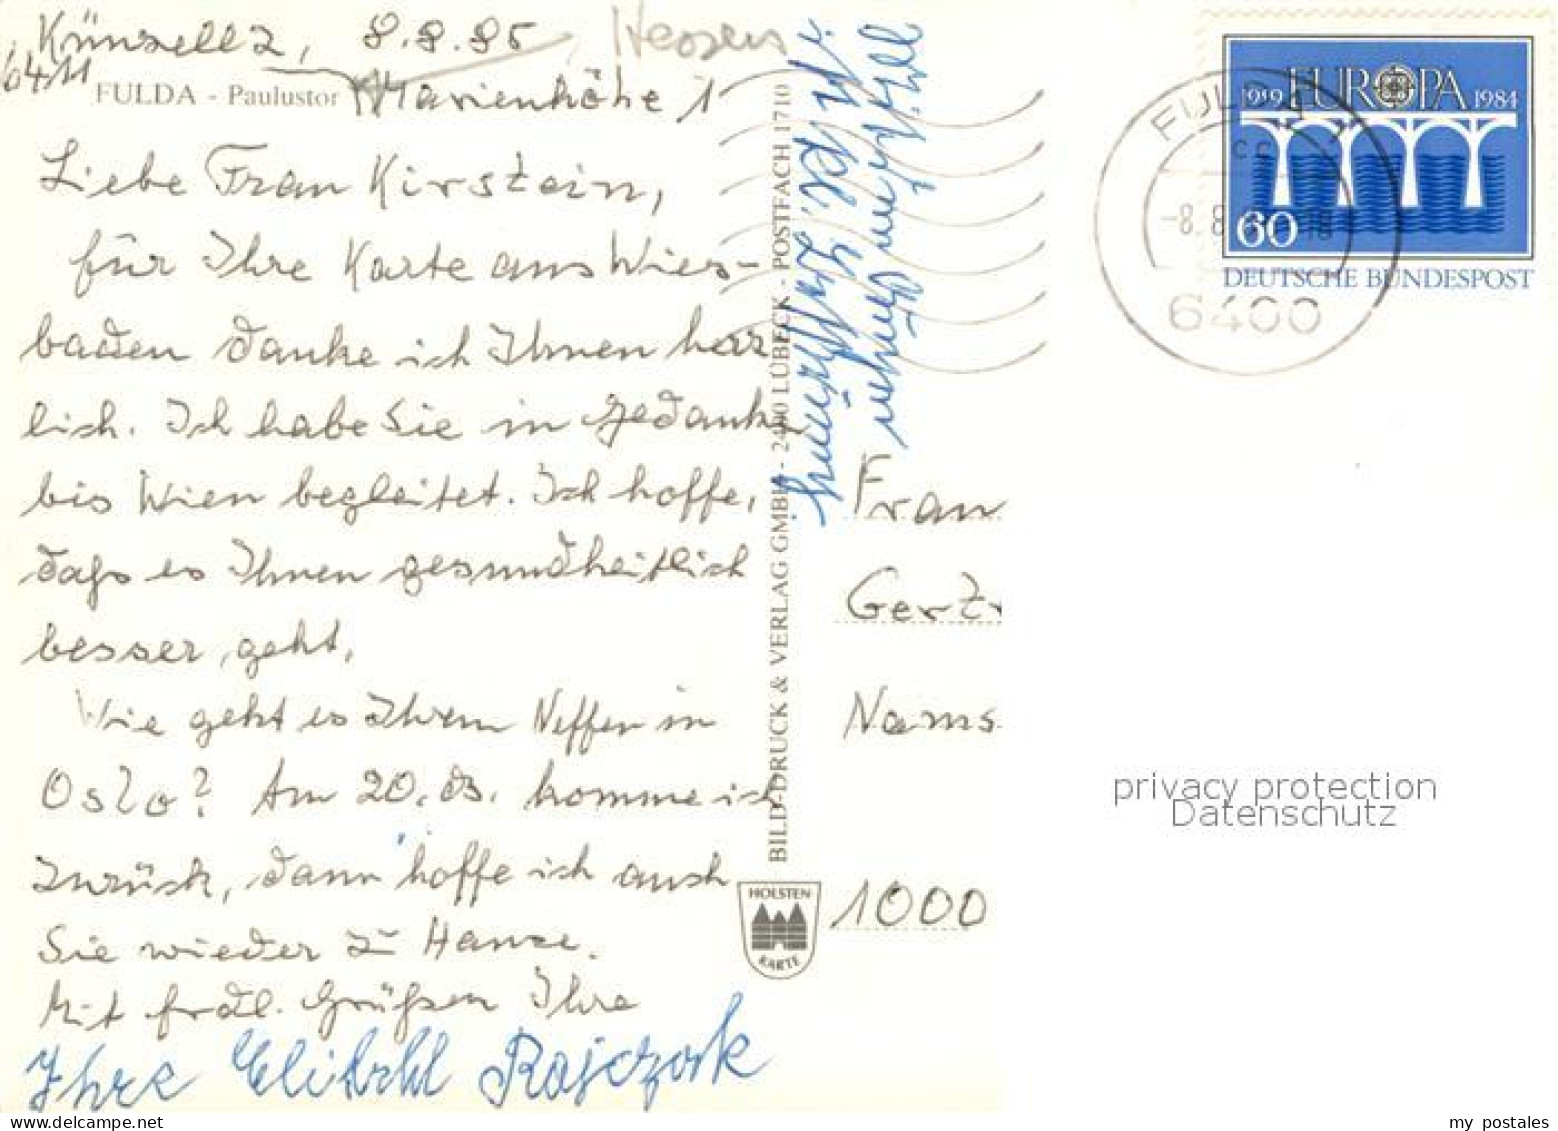 Künzell 2, 8.8.85 Hessen
6411
FULDA - Paulustor Marienhöhe 1
Liebe Frau Kirstein,
für Ihre Karte aus Wies-
baden danke ich Ihnen herz
lich. Ich habe Sie in Gedanken
bis Wien begleitet. Ich hoffe,
daß es Ihnen gesundheitlich
besser geht.
Wie geht es Ihrem Neffen in
Oslo? Am 20.8. komme ich
zurück, dann hoffe ich auch
Sie wieder zu Hause.
Mit frdl. Grüßen Ihre
Ihre Rajczark
BILD-DRUCK & VERLAG GMBH - 2400 LÜBECK - POSTFACH 1710
HOLSTEN
KARTE
1959 EUROPA 1984
60
DEUTSCHE BUNDESPOST
FULDA 1
cc
-8.8. -18
6400
Frau
Gertr
Nams
1000
privacy protection
Datenschutz
my postales